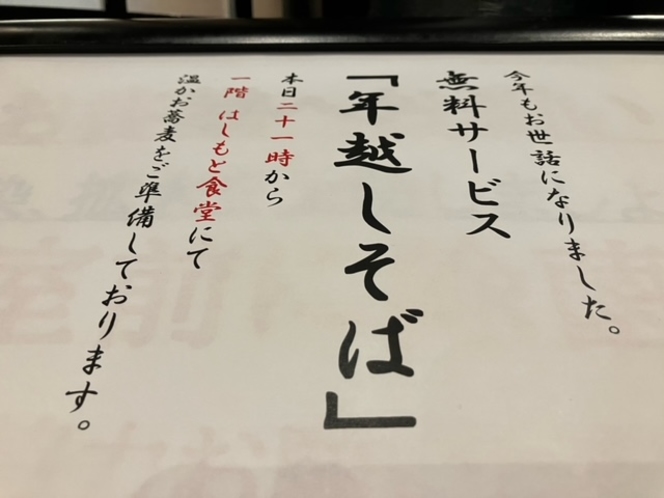 今年もお世話になりました。
無料サービス
「年越しそば」
本日二十一時から
一階 はしもと食堂にて
温かお蕎麦をご準備しております。